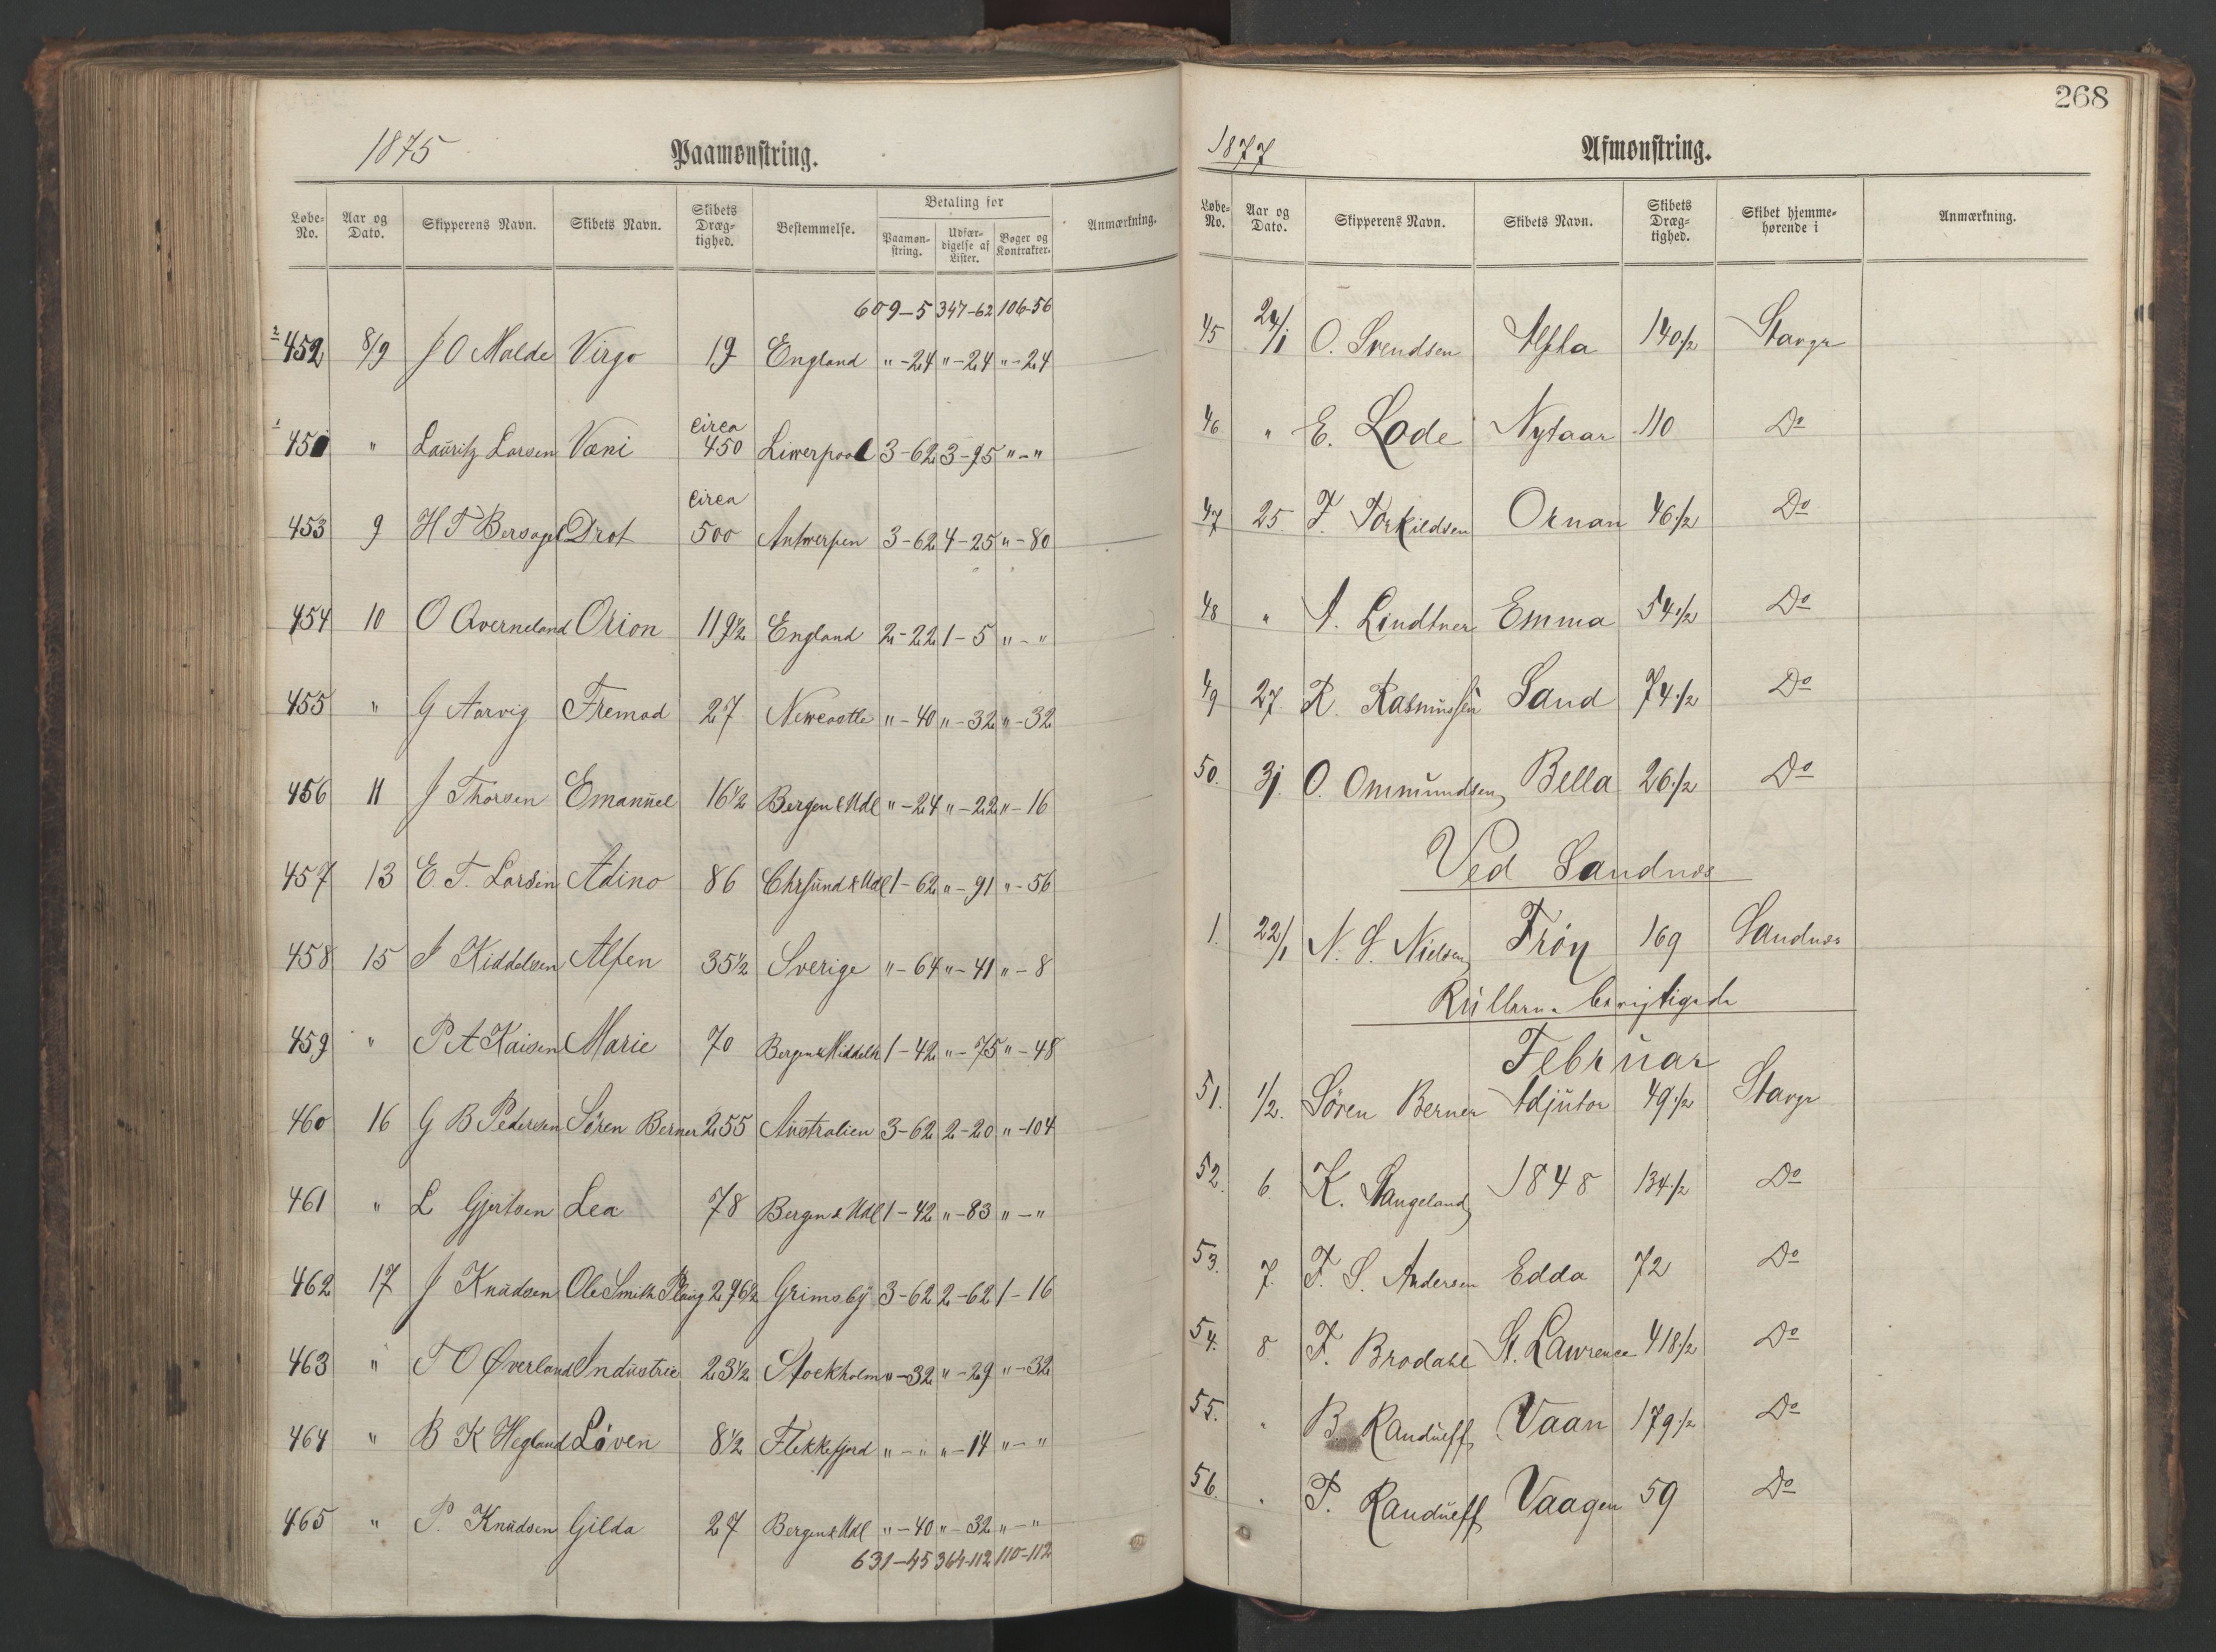 1875
Paamønstring.
Løbe-No.
Aar og Dato.
Skipperens Navn.
Skibets Navn.
Skibets Dræg-tighed.
Bestemmelse.
Betaling for
Paamøn-string.
Udfær-digelse af Lister.
Bøger og Kontrakter.
Anmærkning.
609-5 347-62 106-56
2 452 8/9 J O Malde Virgo 19 England "-24 "-24 "-24
1 451 " Lauritz Larsen Væni circa 450 Liwerpool 3-62 3-95 "-"
453 9 H T Bersagel Drot circa 500 Antwerpen 3-62 4-25 "-80
454 10 O Qverneland Orion 119½ England 2-22 1-5 "-"
455 " G Aarvig Fremad 27 Newcastle "-40 "-32 "-32
456 11 J Thorsen Emanuel 16½ Bergen & Udl "-24 "-22 "-16
457 13 E. T. Larsen Adino 86 Chrsund & Udl 1-62 "-91 "-56
458 15 J Kiddelsen Alfen 35½ Sverige "-64 "-41 "-8
459 " P A Kaisen Marie 70 Bergen & Middelh 1-42 "-75 "-48
460 16 G B Pedersen Søren Berner 255 Australien 3-62 2-20 "-104
461 " L Gjertsen Lea 78 Bergen & Udl 1-42 "-83 "-"
462 17 J Knudsen Ole Smith Ploug 296½ Grimsby 3-62 2-62 1-16
463 " T O Øverland Industrie 23½ Stockholm "-32 "-29 "-32
464 " B K Hegland Løven 8½ Flekkefjord "-" "-14 "-"
465 " P. Knudsen Gilda 27 Bergen & Udl "-40 "-32 "-"
631-45 364-112 110-112
268
1877
Afmønstring.
Løbe-No.
Aar og Dato.
Skipperens Navn.
Skibets Navn.
Skibets Dræg-tighed.
Skibet hjemme-hørende i
Anmærkning.
45 24/1 O. Svendsen Alpha 140½ Stavgr
46 " E. Lode Nytaar 110 Do
47 25 T. Torkildsen Ornan 46½ Do
48 " A. Lindtner Emma 54½ Do
49 27 R. Rasmussen Sand 74½ Do
50. 31. O. Ommundsen Bella 26½ Do
Ved Sandnæs
1. 22/1 N. S. Nielsen Frøy 169 Sandnæs
Rullerne berigtigede
Februar
51. 1/2. Søren Berner Adjutor 49½ Stavgr
52. 6 K. Stangeland 1848 134½ Do
53. 7. T. S. Andersen Edda 72 Do
54. 8. F. Brodahl St. Lawrence 418½ Do
55. " B. Randueff Vaan 179½ Do
56. " P. Randueff Vaagen 59 Do